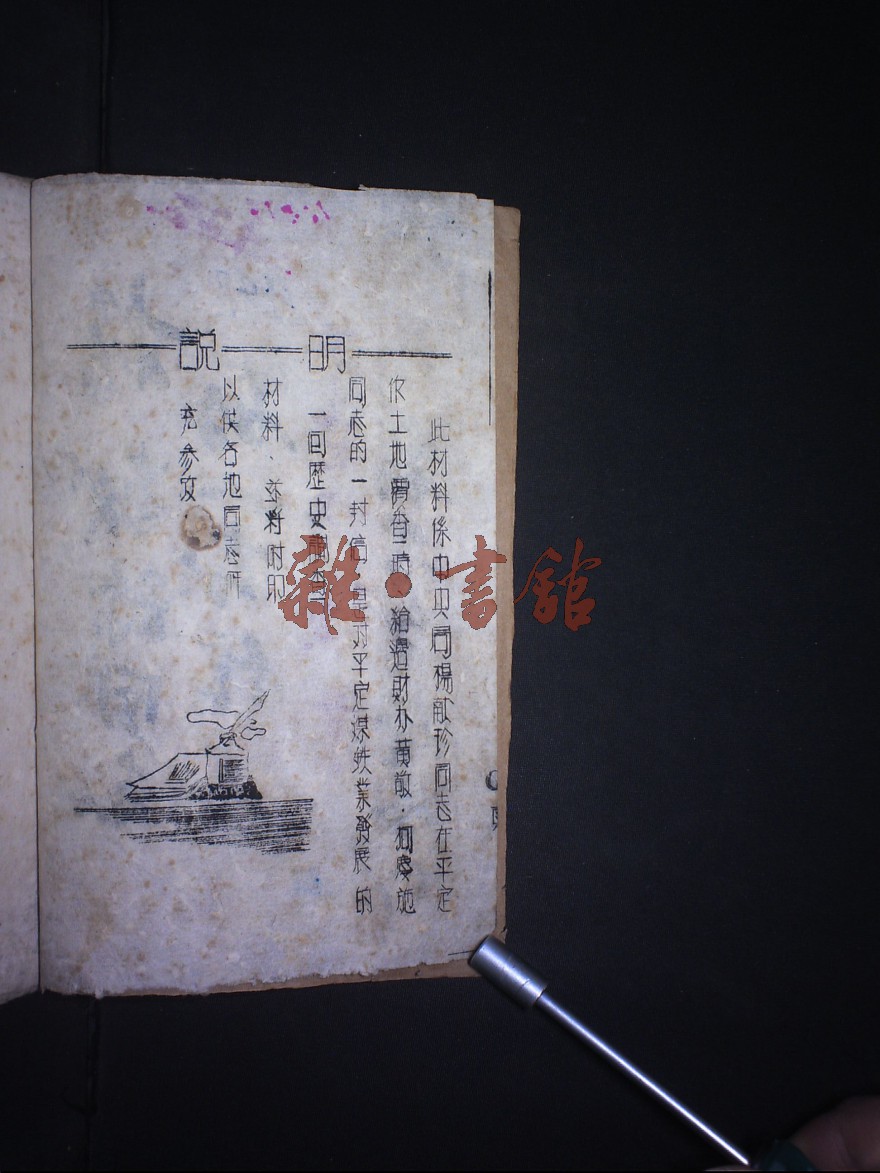 説明
此材料係中央局楊献珍同志在平定
作土地覆查時、給邊財办黄敬．柯慶施
同志的一封信 是对平定煤鉄業發展的
一回歴史調查
材料、並將付印
以供各地同志研
究參攷
雜·書館